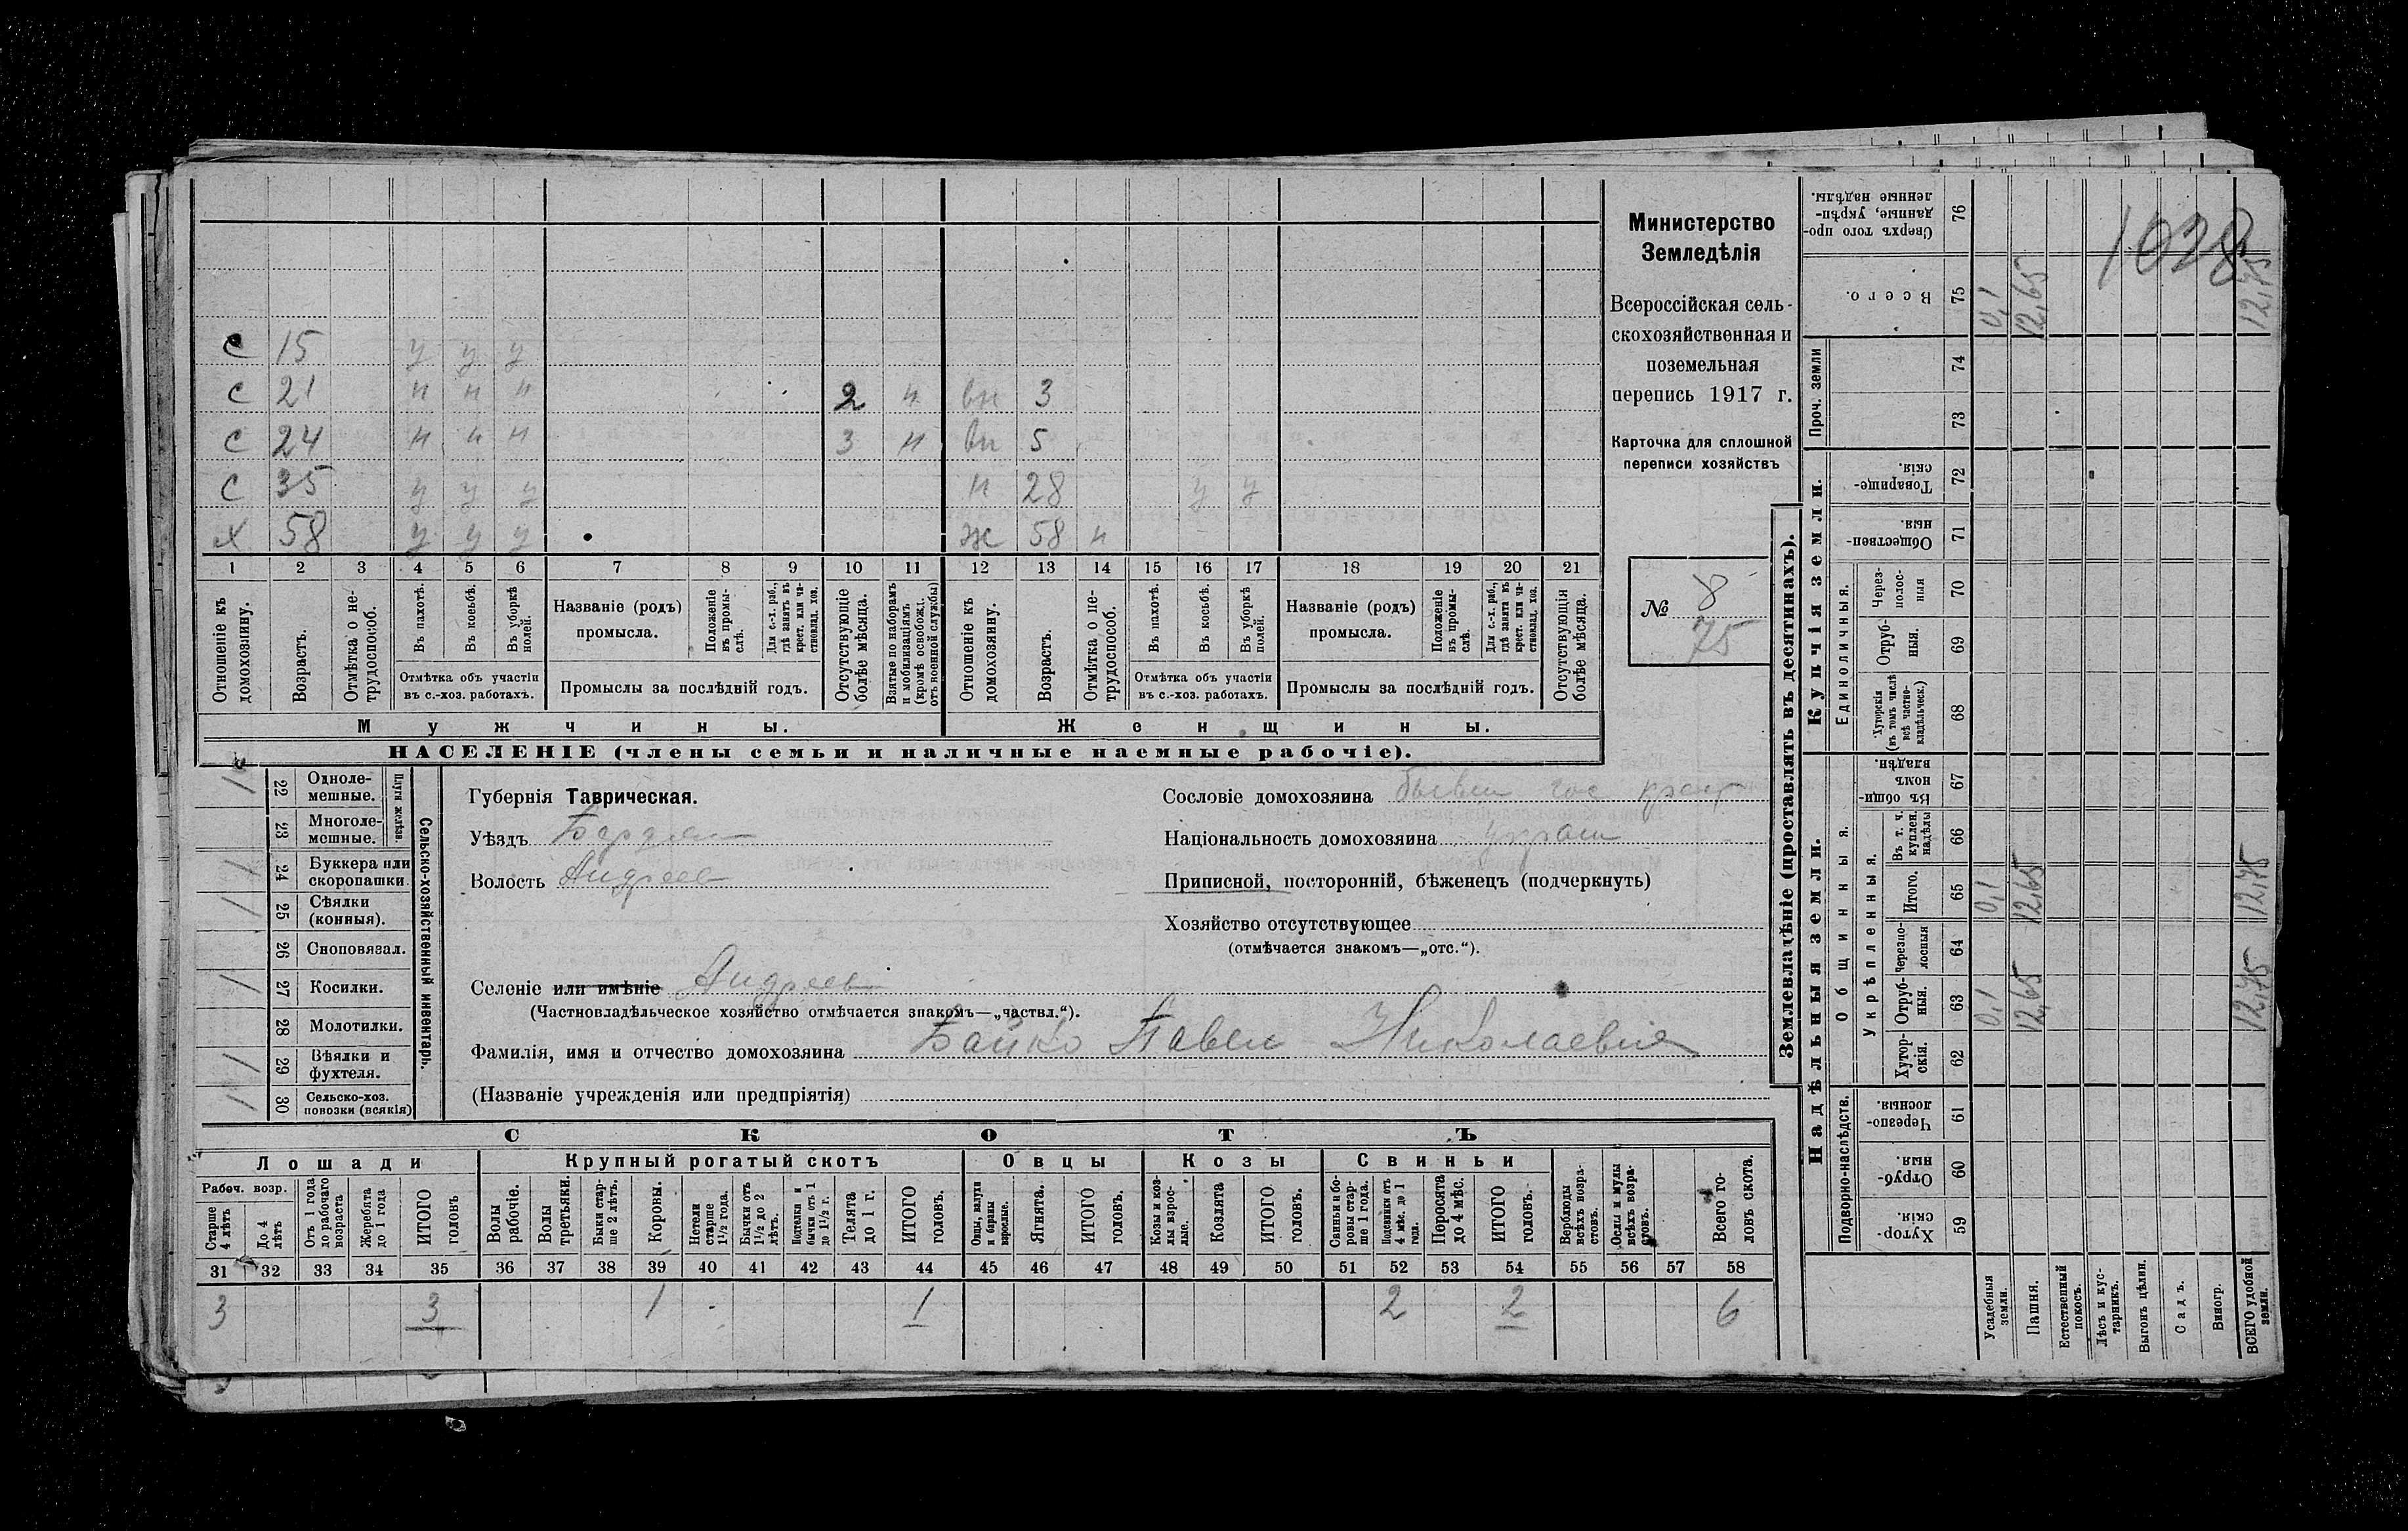 Министерство
Земледѣлія
Всероссійская сель-
скохозяйственная и
поземельная
перепись 1917 г.
Карточка для сплошной
переписи хозяйствъ
№ 8
75
1028
С 15 у у у
С 21 н н н 2 н вн 3
С 24 н н н 3 н вн 5
С 35 у у у н 28 у у
х 58 у у у ж 58 н
1 2 3 4 5 6 7 8 9 10 11 12 13 14 15 16 17 18 19 20 21
Отношеніе къ домохозяину.
Возрастъ.
Отмѣтка о не-трудоспособ.
Въ пахотѣ.
Въ косьбѣ.
Въ уборкѣ полей.
Отмѣтка объ участіи
въ с.-хоз. работахъ.
Названіе (родъ)
промысла.
Положеніе въ промы-слѣ.
Для с.-х. раб., гдѣ занятъ въ крест. или ча-стновлад. хоз.
Промыслы за послѣдній годъ.
Отсутствующіе болѣе мѣсяца.
Взятые по наборамъ и мобилизаціямъ (кромѣ освобожд. отъ военной службы)
Отношеніе къ домохозяину.
Возрастъ.
Отмѣтка о не-трудоспособ.
Въ пахотѣ.
Въ косьбѣ.
Въ уборкѣ полей.
Отмѣтка объ участіи
въ с.-хоз. работахъ.
Названіе (родъ)
промысла.
Положеніе въ промы-слѣ.
Для с.-х. раб., гдѣ занята въ крест. или ча-стновлад. хоз.
Промыслы за послѣдній годъ.
Отсутствующія болѣе мѣсяца.
Мужчины. Женщины.
НАСЕЛЕНІЕ (члены семьи и наличные наемные рабочіе).
Сельско-хозяйственный инвентарь.
Плуги желѣзн.
22 Одноле-мешные. 1
23 Многоле-мешные.
24 Буккера или скоропашки. 1
25 Сѣялки (конныя). 1
26 Сноповязал.
27 Косилки. 1
28 Молотилки.
29 Вѣялки и фухтеля. 1
30 Сельско-хоз. повозки (всякія) 1
Губернія Таврическая.
Уѣздъ Бердян
Волость Андреев
Селеніе или имѣніе Андреев
(Частновладѣльческое хозяйство отмѣчается знакомъ—„частвл.“).
Фамилія, имя и отчество домохозяина Байко Павел Николаевич
(Названіе учрежденія или предпріятія)
Сословіе домохозяина бывш гос крест
Національность домохозяина украин
Приписной, посторонній, бѣженецъ (подчеркнуть)
Хозяйство отсутствующее
(отмѣчается знакомъ—„отс.“).
СКОТЪ
Лошади Крупный рогатый скотъ Овцы Козы Свиньи
Рабоч. возр.
Старше 4 лѣтъ
До 4 лѣтъ
Отъ 1 года до рабочаго возраста
Жеребята до 1 года
ИТОГО головъ
Волы рабочіе.
Волы третьяки.
Быки стар-ше 2 лѣтъ.
Коровы.
Нетели старше 1½ года.
Бычки отъ 1½ до 2 лѣтъ.
Подтелки и бычки отъ 1 до 1½ г.
Телята до 1 г.
ИТОГО головъ.
Овцы, валухи и бараны взрослые.
Ягнята.
ИТОГО головъ.
Козы и коз-лы взрос-лые.
Козлята
ИТОГО головъ.
Свиньи и бо-ровы стар-ше 1 года.
Подсвинки отъ 4 мѣс. до 1 года.
Поросята до 4 мѣс.
ИТОГО головъ.
Верблюды всѣхъ возра-стовъ.
Ослы и мулы всѣхъ возра-стовъ.
Всего го-ловъ скота.
31 32 33 34 35 36 37 38 39 40 41 42 43 44 45 46 47 48 49 50 51 52 53 54 55 56 57 58
3 3 1 1 2 2 6
Землевладѣніе (проставлять въ десятинахъ).
Надѣльныя земли. Купчія земли.
Проч. земли
Подворно-наслѣдств.
Общинныя.
Укрѣпленныя.
Единоличныя.
Сверхъ того про-данные, укрѣп-ленные надѣлы. 76
Всего. 75 0,1 12,65 12,75
74
73
Товарище-скія. 72
Обществен-ныя. 71
Через-полос-ныя 70
Отруб-ныя. 69
Хуторскія (въ томъ числѣ всѣ частно-владѣльческ.) 68
Въ общи-номъ владѣн. 67
Въ т. ч. куплен. надѣлы 66
Итого. 65 0,1 12,65 12,75
Черезпо-лосныя 64
Отруб-ныя. 63 0,1 12,65 12,75
Хутор-скія. 62
Черезпо-лосныя. 61
Отруб-ныя. 60
Хутор-скія. 59
Усадебныя земли.
Пашня.
Естественный покосъ.
Лѣсъ и кус-тарникъ.
Выгонъ цѣлин.
Садъ.
Виногр.
ВСЕГО удобной земли.